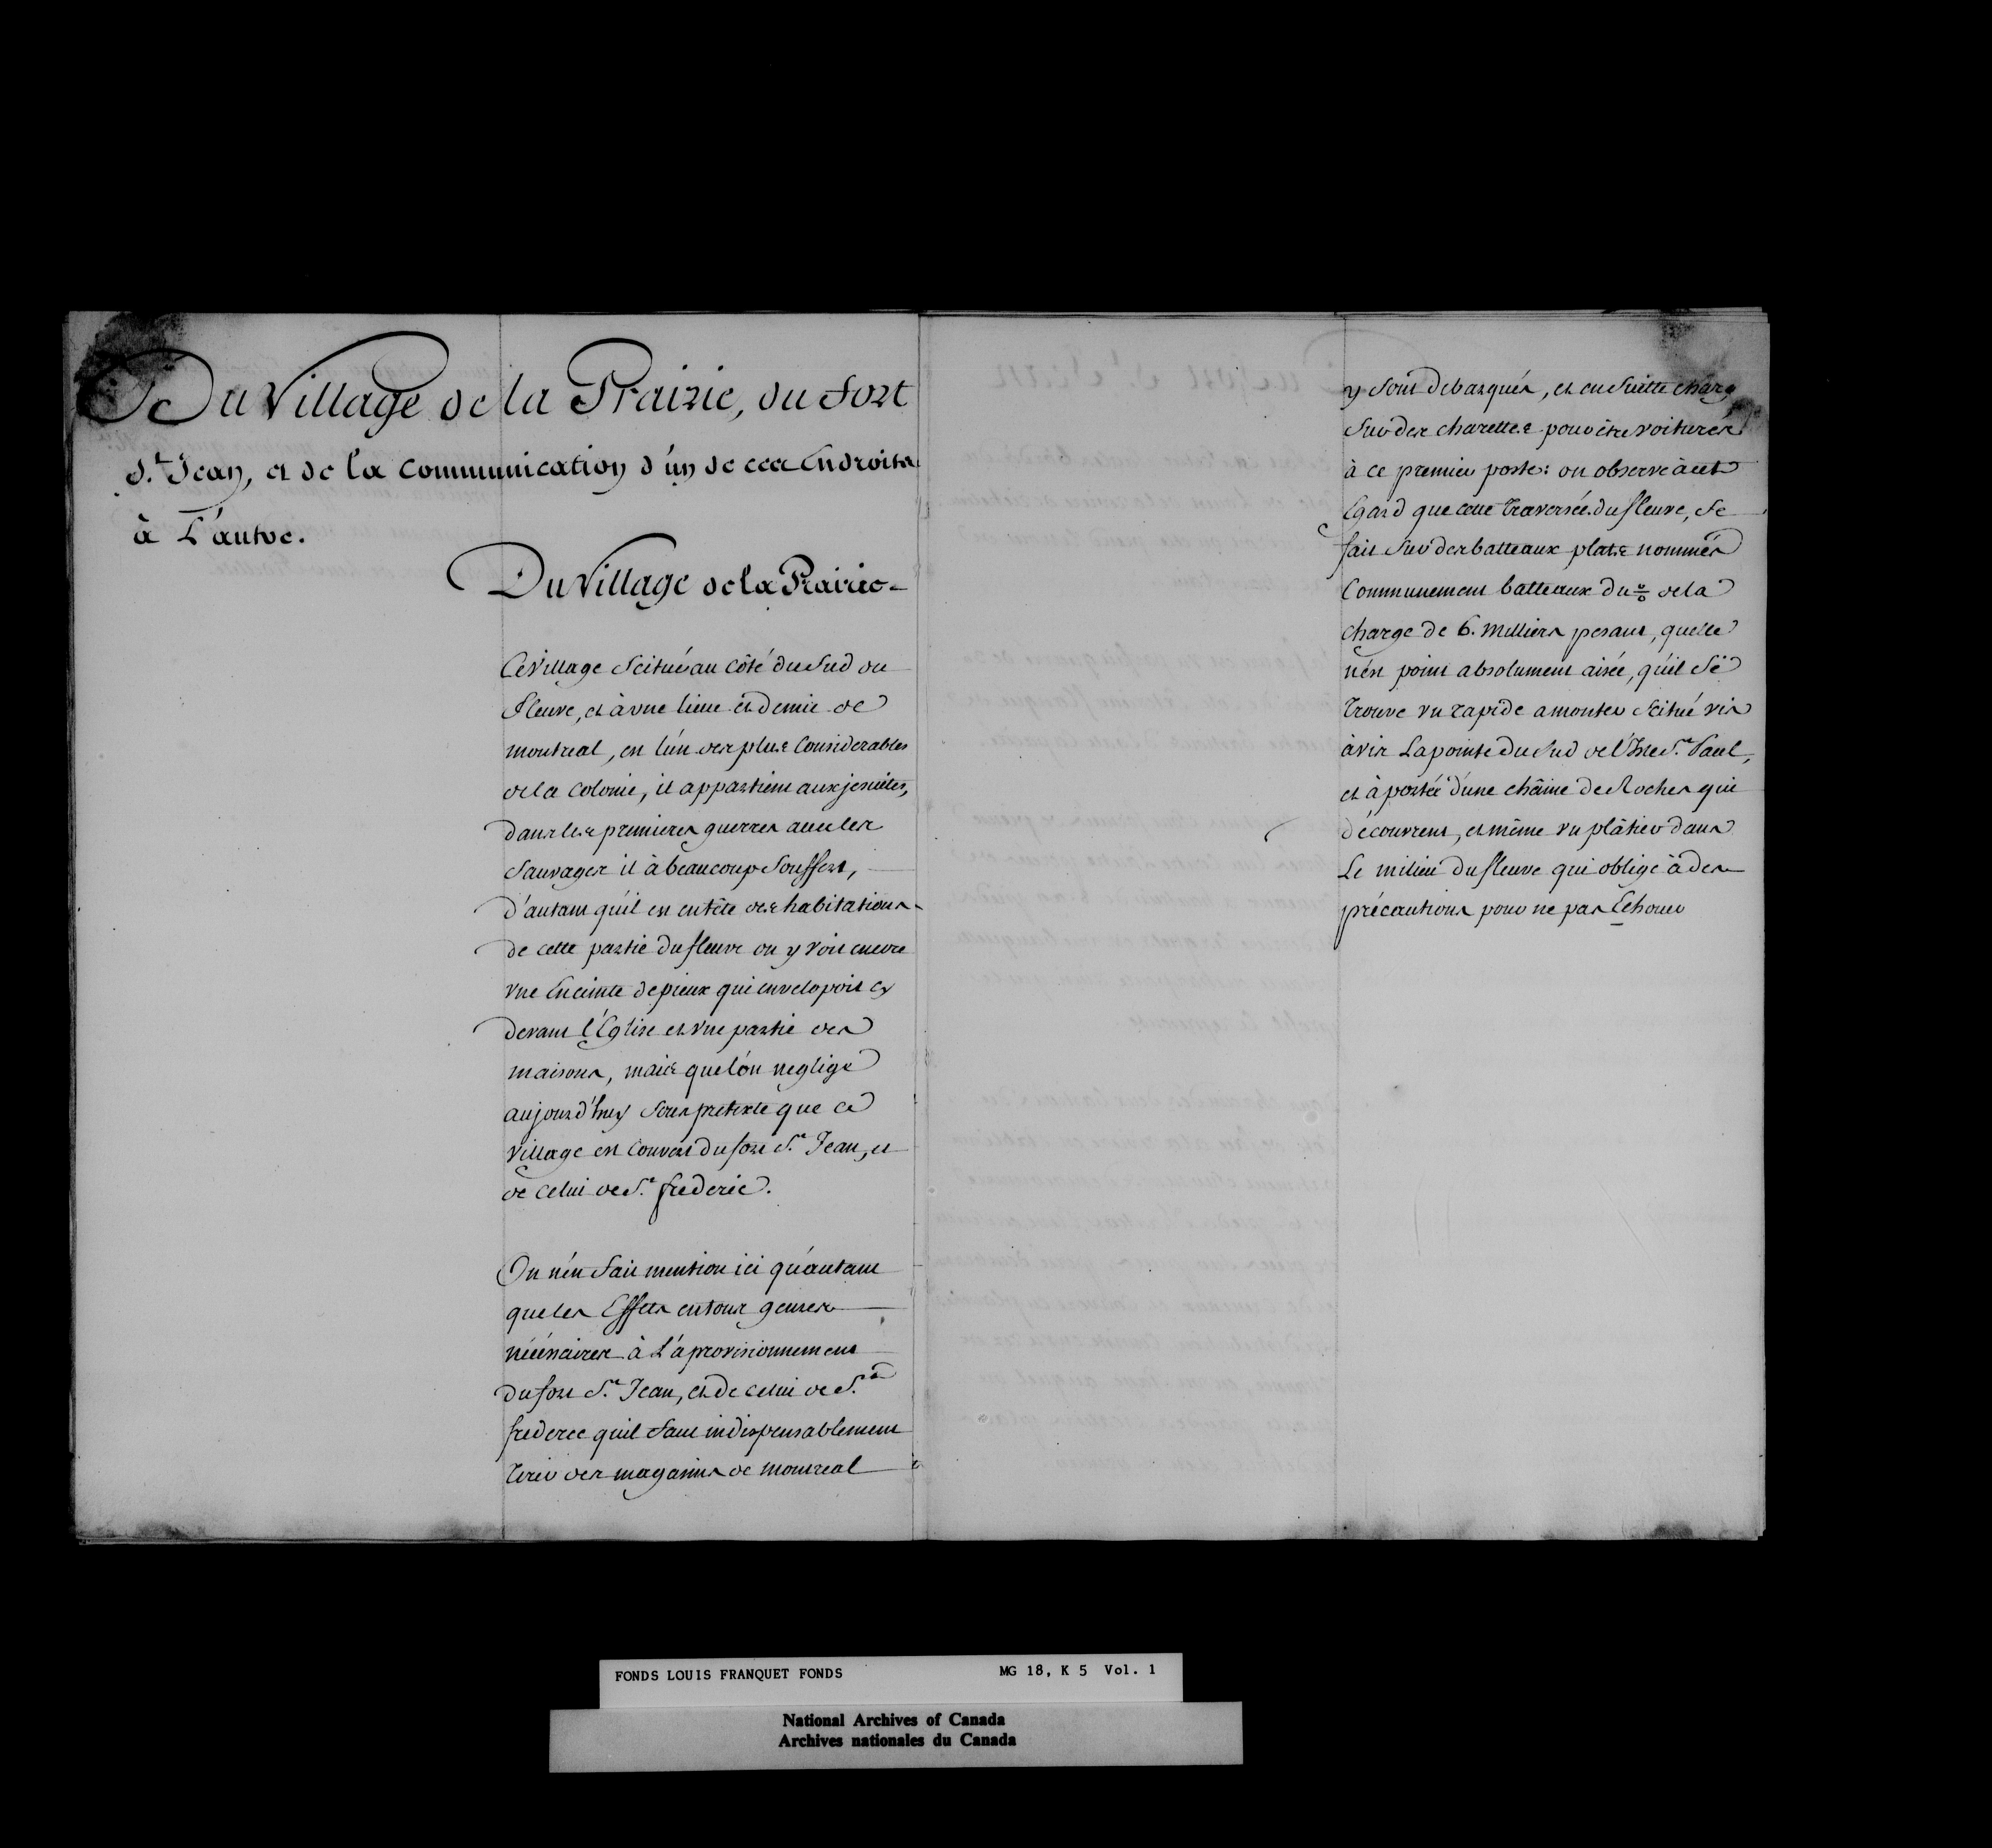 Du Village de la Prairie, du fort
S.t Jean, et de la Communication d'un de ces Endroits
à L'autre.
Du Village de la Prairie
Ce Village Scitué au côté du Sud du
fleuve, et à une lieue et demie de
montreal, est l'un des plus Considerables
de la Colonie, il appartient aux jesuites,
dans les premieres guerres avec les
Sauvages il à beaucoup Souffert,
d'autant qu'il est en tête des habitations
de cette partie du fleuve on y voit encore
une Enceinte de pieux qui envelopoit cy
devant l'Eglise et une partie des
maisons, mais que l'on neglige
aujourd'huy sous pretexte que ce
Village est Couvert du fort S.t Jean, et
de Celui de S.t frederic.
On n'en fait mention ici qu'autant
que les Effets en tous genres
nécéssaires à L'aprovisionnement
du fort S.t Jean, et de celui de S.t
frederec qu'il faut indispensablement
tirer des magasins de montreal
y sont debarqués, et en suitte charg
Sur des charettes pour être voiturés
à ce premier poste: on observe à cet
Egard que cette traversée du fleuve, se
fait Sur des batteaux plats nommés
Communement batteaux du de la
charge de 6. milliers pesant, quelle
n'est point absolument aisée, qu'il Se
trouve un rapide a monter Scitué vis
à vis La pointe du Sud de l'Isle S.t Paul,
et à portée d'une chaîne de Roches qui
découvrent, et même un plâtier dans
Le milieu du fleuve qui oblige à des
précautions pour ne pas Echouer
FONDS LOUIS FRANQUET FONDS MG 18, K 5 Vol. 1
National Archives of Canada
Archives nationales du Canada